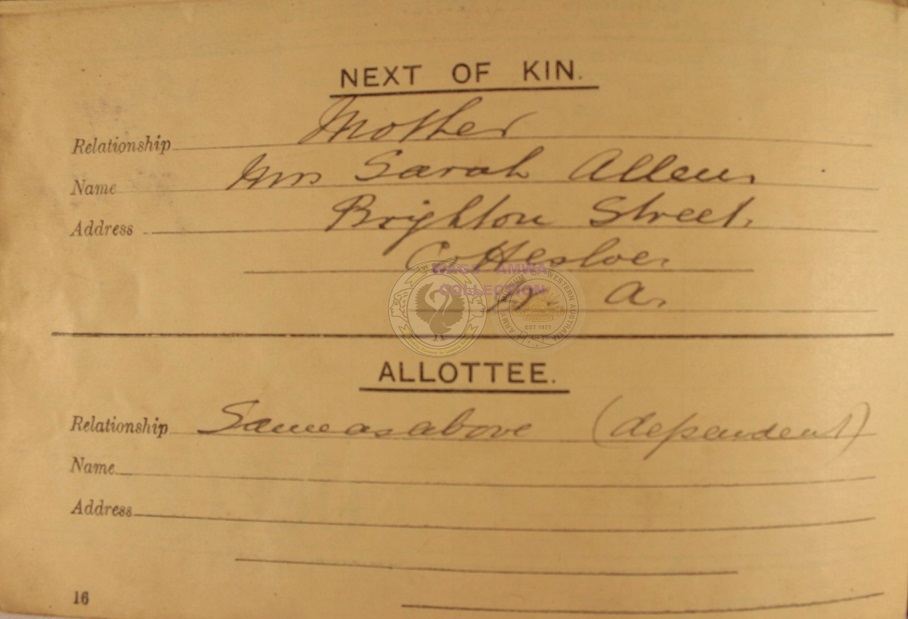 NEXT OF KIN.
Relationship Mother
Name Mrs Sarah Allen,
Address Brighton Street,
Cottesloe,
W. A.
RAGS AMWA
COLLECTION
ALLOTTEE.
Relationship Same as above (dependent)
Name
Address
16